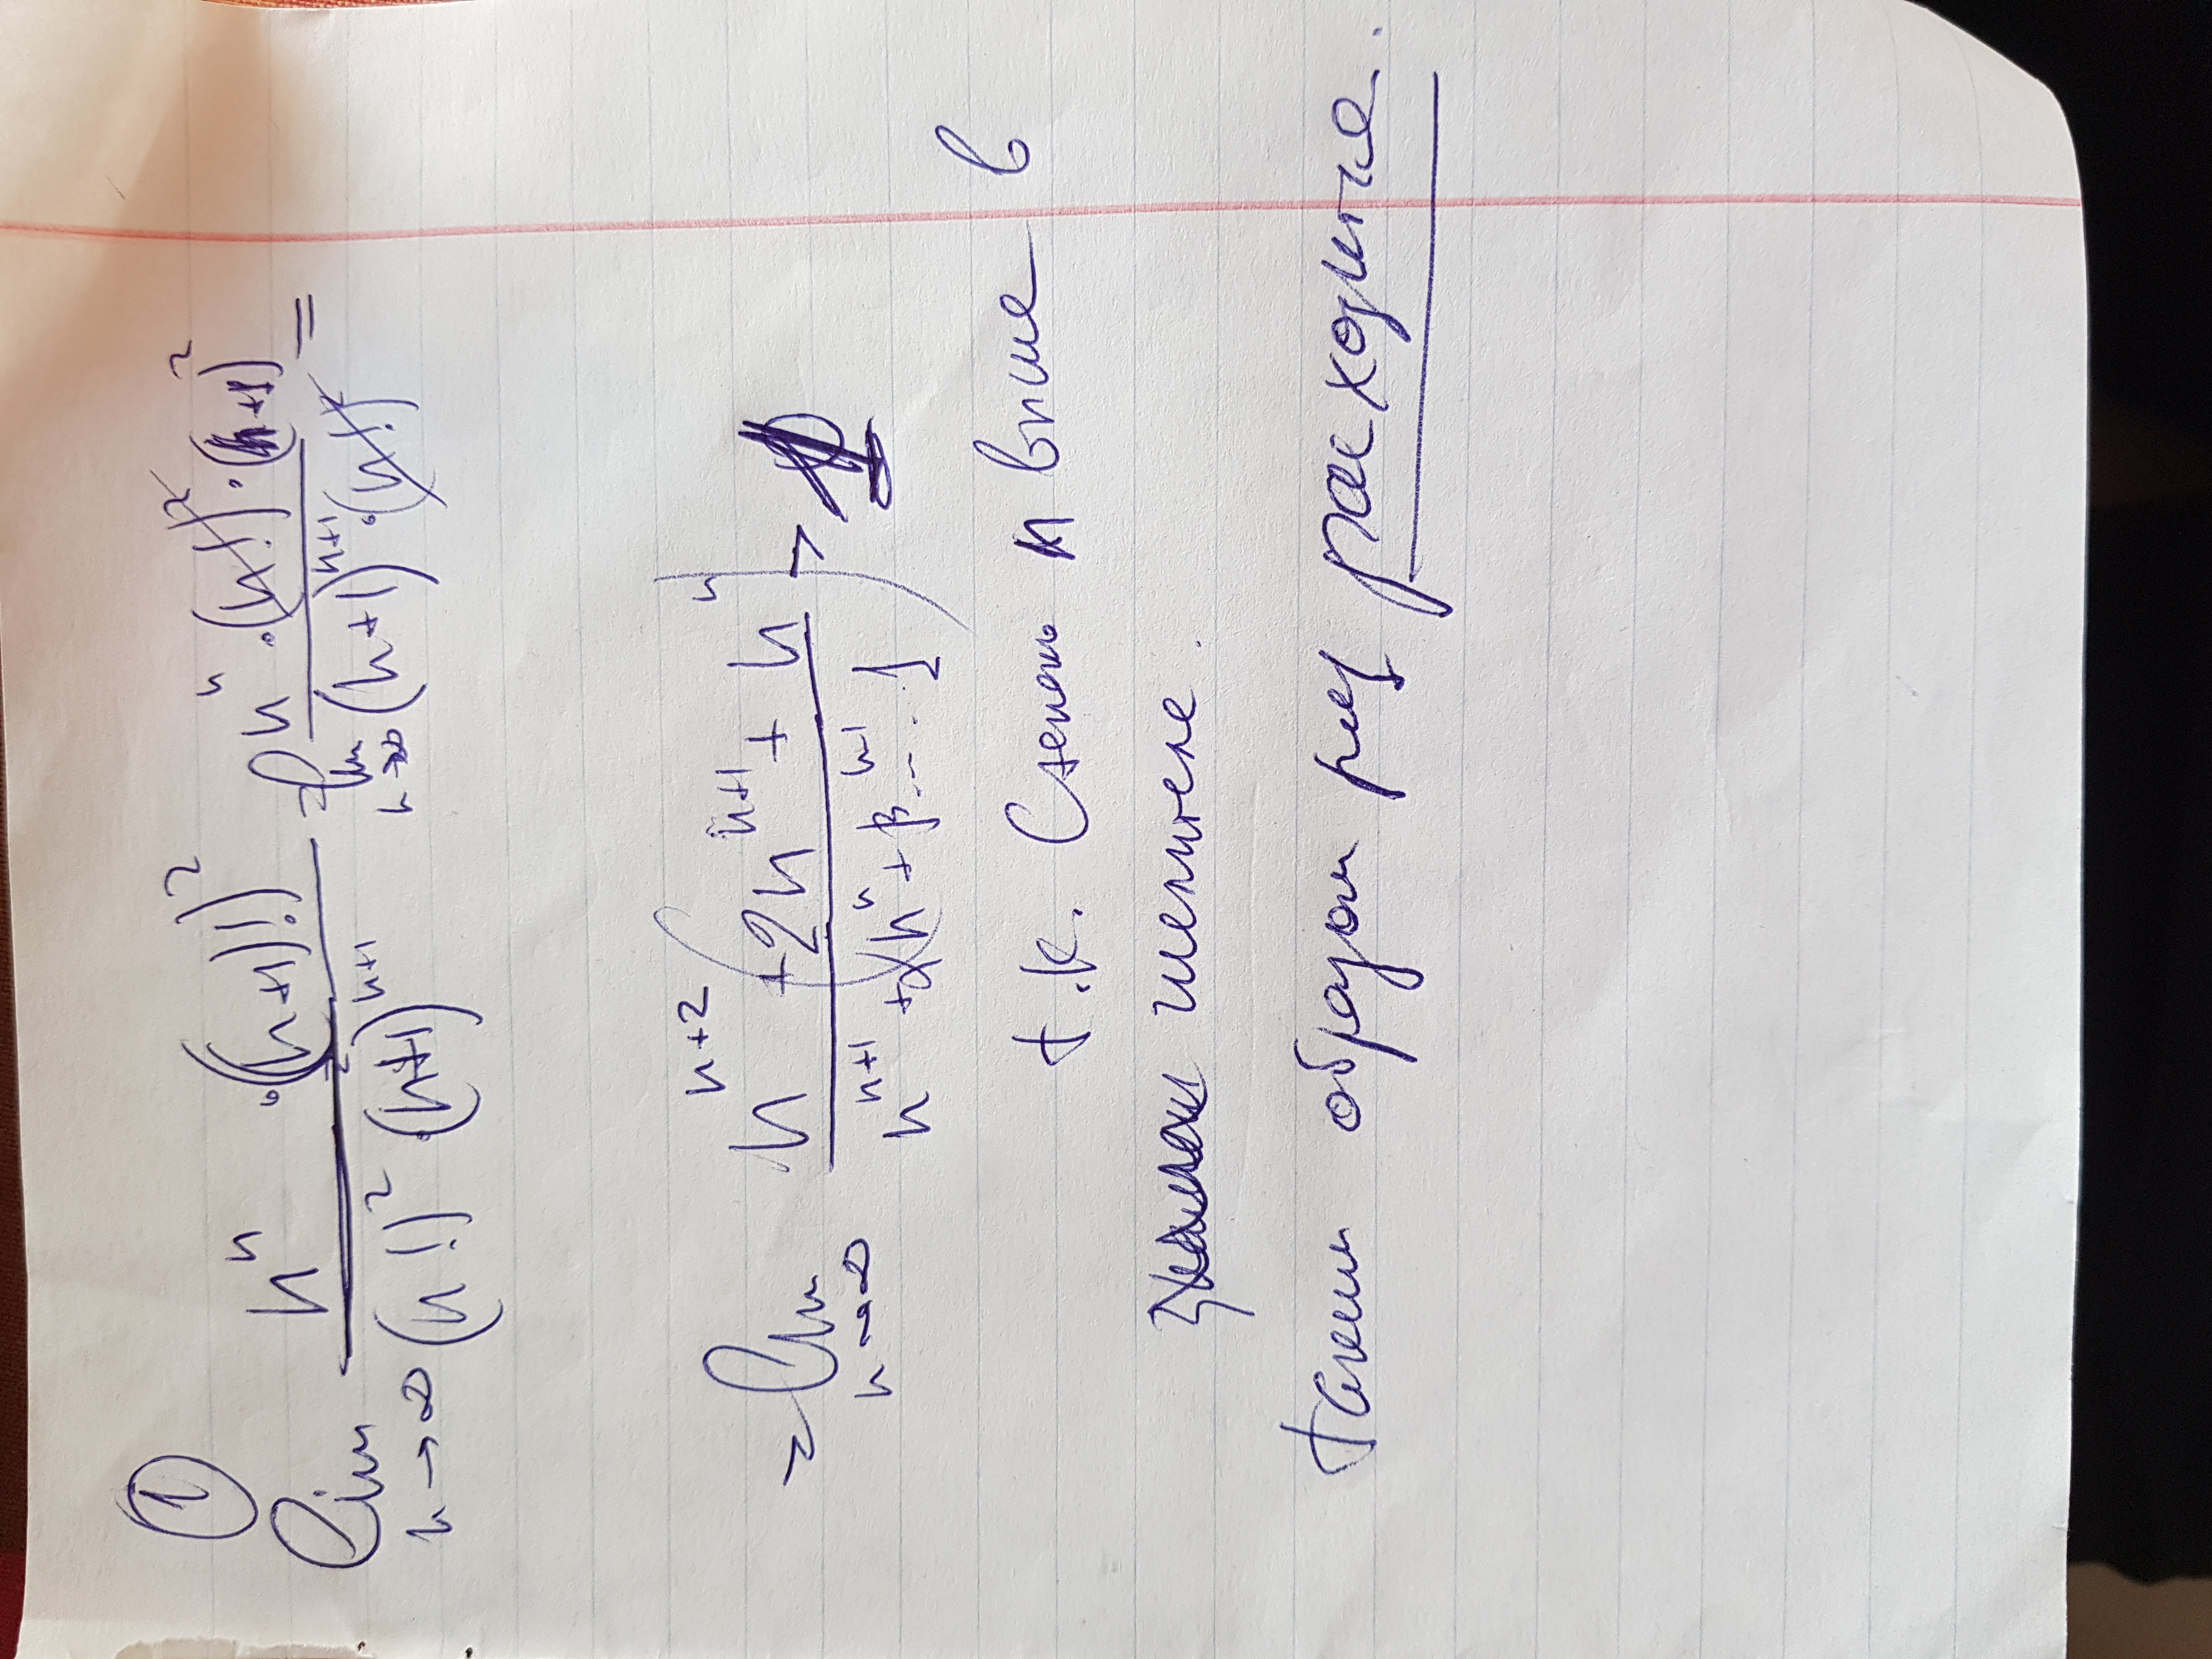 ①
lim n→∞ n^n · ((n+1)!)^2 / (n!)^2 · (n+1)^{n+1} = lim n→∞ n^n · (n!)^2 · (n+1)^2 / (n+1)^{n+1} · (n!)^2 =
= lim n→∞ n^{n+2} + 2n^{n+1} + n^n / n^{n+1} + αn^n + β^{n-1} ... 1 →
т.к. Степень n выше в
числителе.
таким образом ряд расходится.